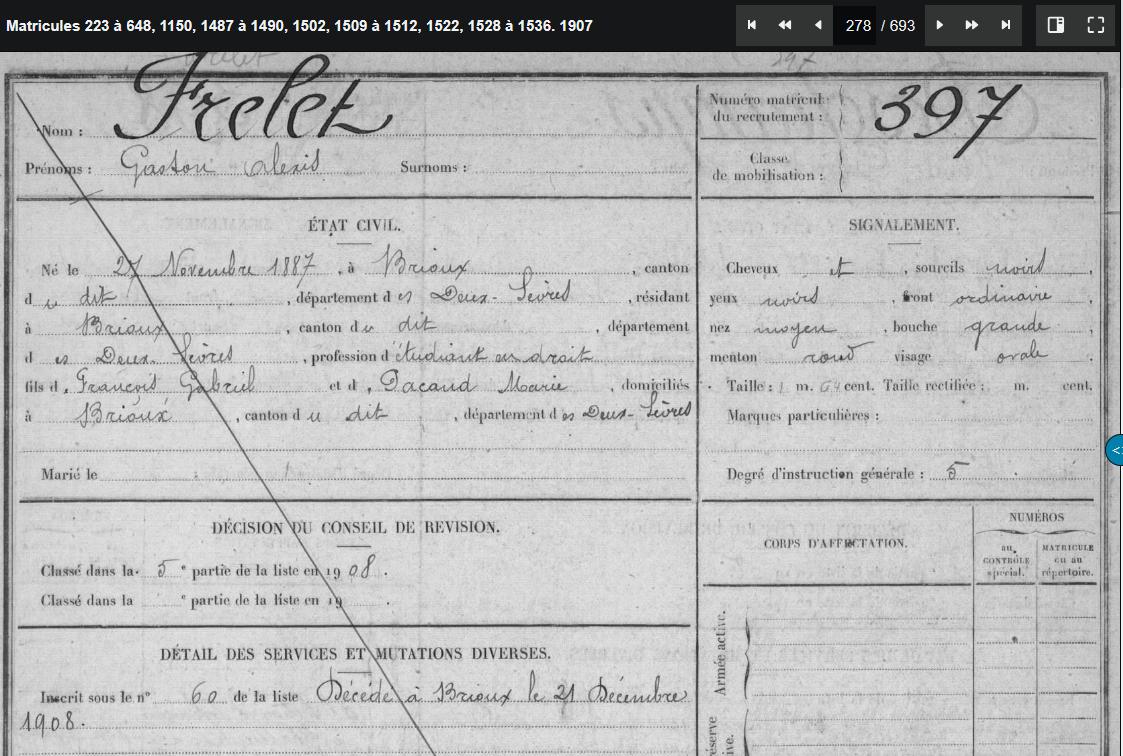 Matricules 223 à 648, 1150, 1487 à 1490, 1502, 1509 à 1512, 1522, 1528 à 1536. 1907
278 / 693
Nom : Frelet
Prénoms : Gaston Alexis Surnoms :
Numéro matricule du recrutement : 397
Classe de mobilisation :
ÉTAT CIVIL.
Né le 27 Novembre 1887, à Brioux, canton
du dit, département des Deux-Sèvres, résidant
à Brioux, canton du dit, département
des Deux-Sèvres, profession d'étudiant en droit
fils d, François Gabriel et d, Pacaud Marie, domiciliés
à Brioux, canton du dit, département des Deux-Sèvres
Marié le
SIGNALEMENT.
Cheveux et, sourcils noirs
yeux noirs, front ordinaire,
nez moyen, bouche grande,
menton rond visage ovale.
Taille : 1 m. 64 cent. Taille rectifiée : m. cent.
Marques particulières :
Degré d'instruction générale : 5
DÉCISION DU CONSEIL DE REVISION.
Classé dans la 5e partie de la liste en 1908.
Classé dans la e partie de la liste en 19 .
CORPS D'AFFECTATION.
NUMÉROS
au CONTRÔLE spécial.
MATRICULE ou au répertoire.
Armée active.
DÉTAIL DES SERVICES ET MUTATIONS DIVERSES.
Inscrit sous le n° 60 de la liste Décédé à Brioux le 21 Décembre
1908.